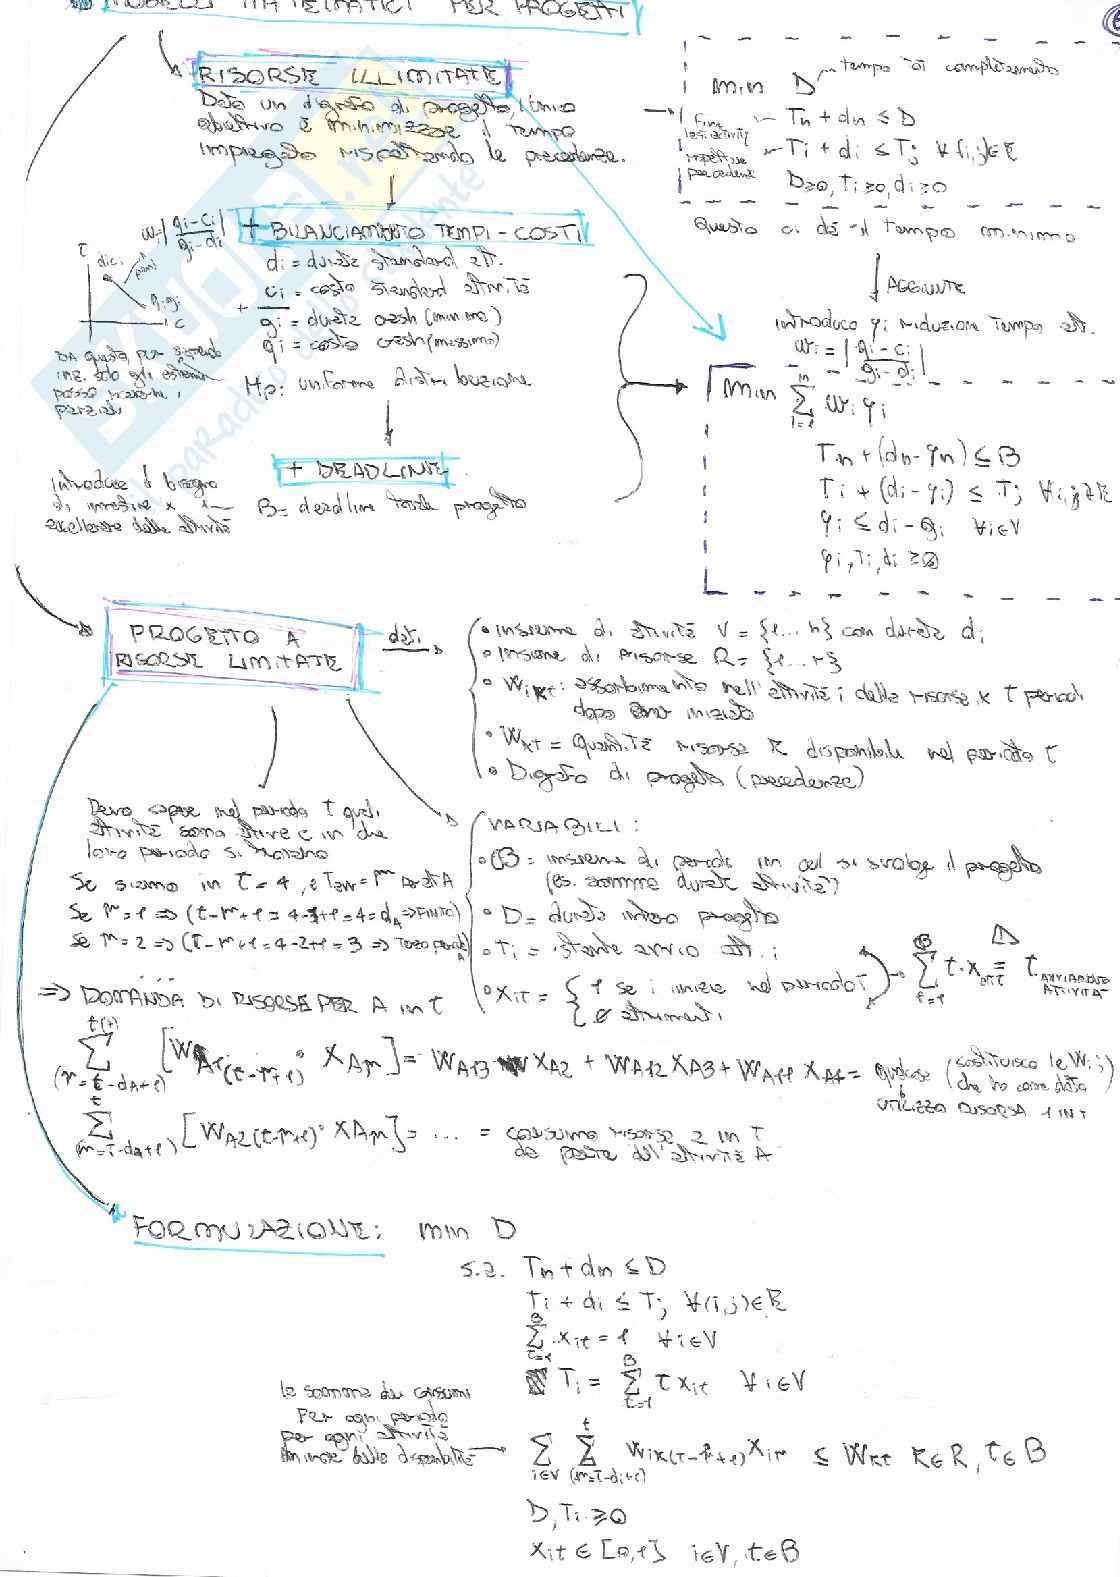 MODELLI MATEMATICI PER PROGETTI
RISORSE ILLIMITATE
Dato un digrafo di progetto, l'unico
obiettivo è minimizzare il tempo
impiegato rispettando le precedenze.
min D tempo di completamento
Tn + dn ≤ D
Fine
Ti + di ≤ Tj ∀(i,j)∈E
rispettare
precedenze
D≥0, Ti≥0, di≥0
Questo ci dà il tempo minimo
AGGIUNTE
introduco φi riduzione tempo att.
wi = |gi-ci / qi-di|
+ BILANCIAMENTO TEMPI-COSTI
di = durata standard att.
ci = costo standard attività
gi = durata crash (minima)
qi = costo crash (massimo)
Hp: uniforme distribuzione
+ DEADLINE
B = deadline totale progetto
introduce il bisogno
di investire x
accellerare delle attività
min Σ wi φi
Tn + (dn-φn) ≤ B
Ti + (di-φi) ≤ Tj ∀i,j∈E
φi ≤ di - gi ∀i∈V
φi, Ti, di ≥0
PROGETTO A
RISORSE LIMITATE
dati
• insieme di attività V = {1...n} con durata di
• insieme di risorse R = {1...r}
• Wikt: assorbimento nell'attività i della risorsa k t periodi
dopo inizio
• Wkt = quantità risorsa k disponibile nel periodo t
• Digrafo di progetto (precedenze)
Devo sapere nel periodo t quali
attività sono attive e in che
loro periodo si trovano
Se siamo in t = 4,
Se m=1 => (t-m+1 = 4-1+1 = 4 = dA => FINITO)
Se m=2 => (t-m+1 = 4-2+1 = 3 => terzo periodo)
VARIABILI:
• B = insieme di periodi in cui si svolge il progetto
(es. somma durate attività)
• D = durata intero progetto
• Ti = istante avvio att. i
• Xit = { 1 se i inizia nel periodo t
0 altrimenti
=> DOMANDA DI RISORSE PER A in t
Σ (m=t-dA+1) [WA1(t-m+1) · XAm] = WA13 XA2 + WA12 XA3 + WA11 XA4 = qualcosa (sostituisco le Wij
che ho come dato)
UTILIZZO RISORSA 1 IN T
Σ (m=t-dA+1) [WA2(t-m+1) · XAm] = ... = consumo risorsa 2 in t
da parte dell'attività A
FORMULAZIONE: min D
s.a. Tn + dn ≤ D
Ti + di ≤ Tj ∀(i,j)∈E
Σ xit = 1 ∀i∈V
Ti = Σ t xit ∀i∈V
la somma dei consumi
per ogni periodo
per ogni attività
minore della disponibilità
Σ i∈V Σ (m=t-di+1) wik(t-m+1) xim ≤ Wkt k∈R, t∈B
D, Ti ≥0
xit ∈ [0,1] i∈V, t∈B